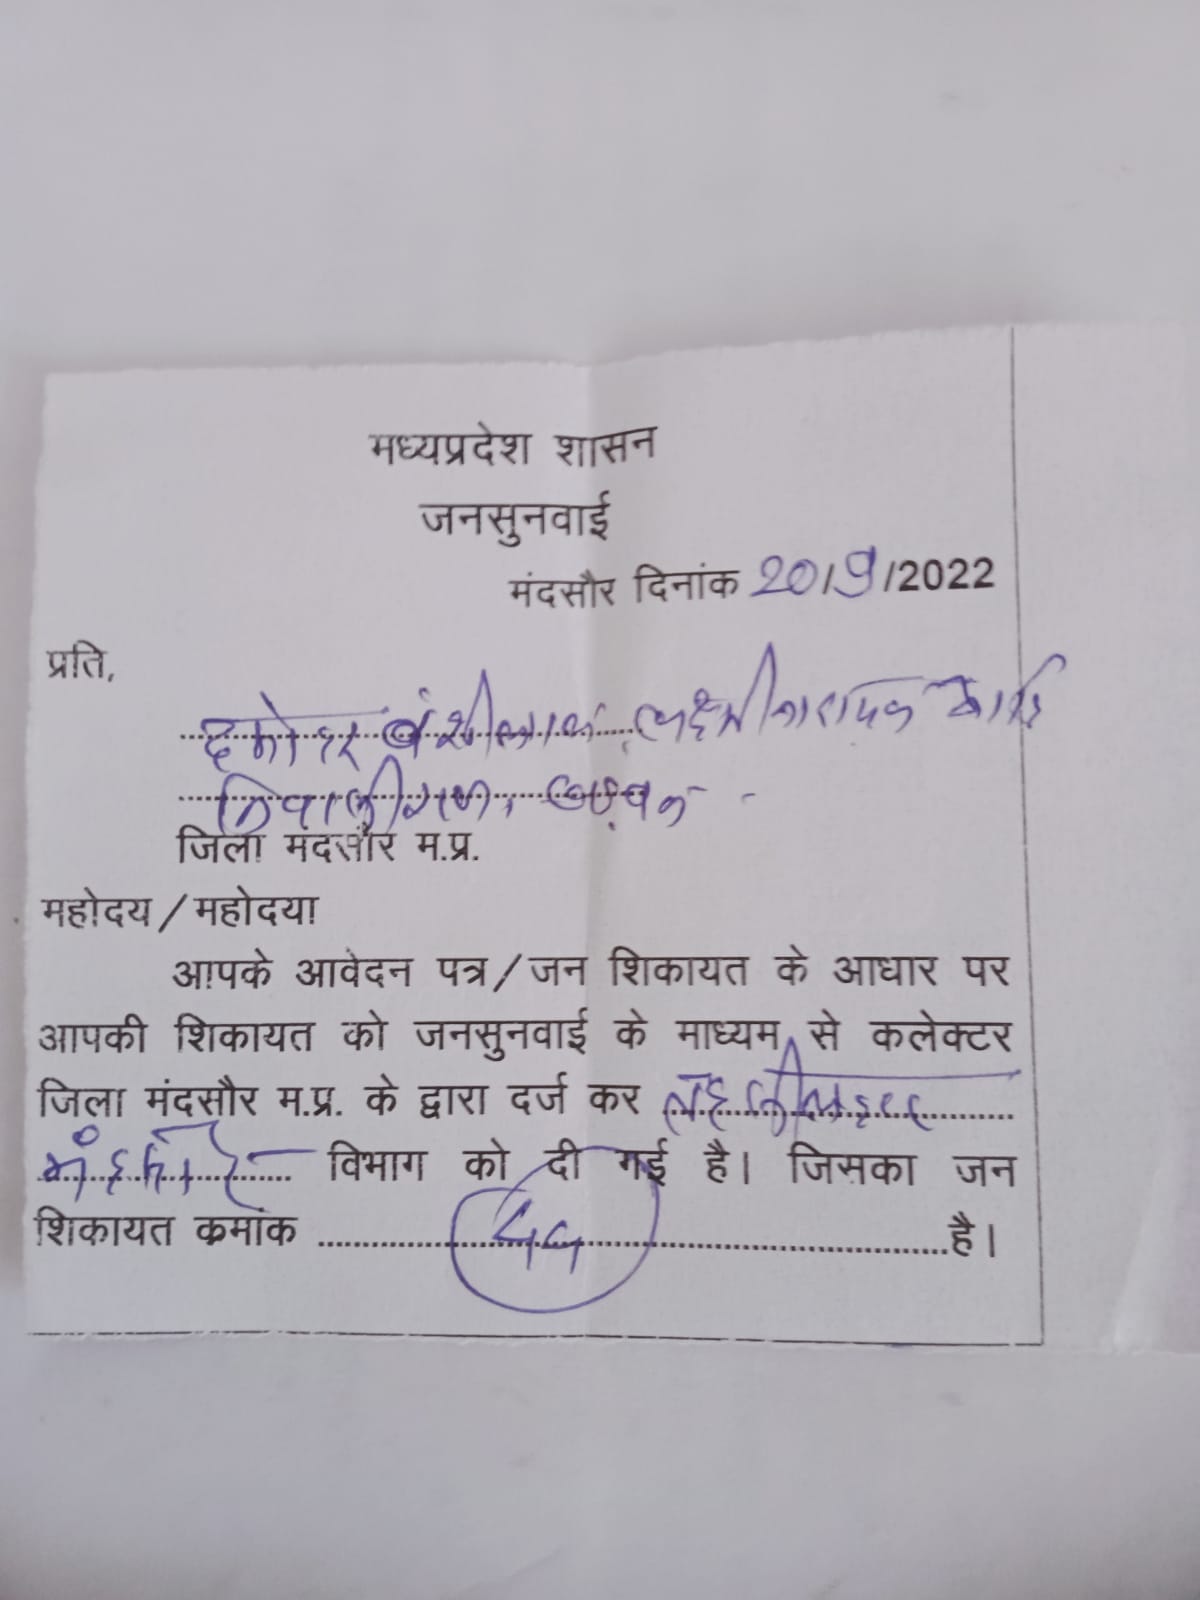 मध्यप्रदेश शासन
जनसुनवाई
मंदसौर दिनांक 20/9/2022
प्रति,
बंशीलाल
जिला मंदसौर म.प्र.
महोदय/महोदया
आपके आवेदन पत्र/जन शिकायत के आधार पर
आपकी शिकायत को जनसुनवाई के माध्यम से कलेक्टर
जिला मंदसौर म.प्र. के द्वारा दर्ज कर तहसीलदार
मंदसौर विभाग को दी गई है। जिसका जन
शिकायत कमांक ........ है।